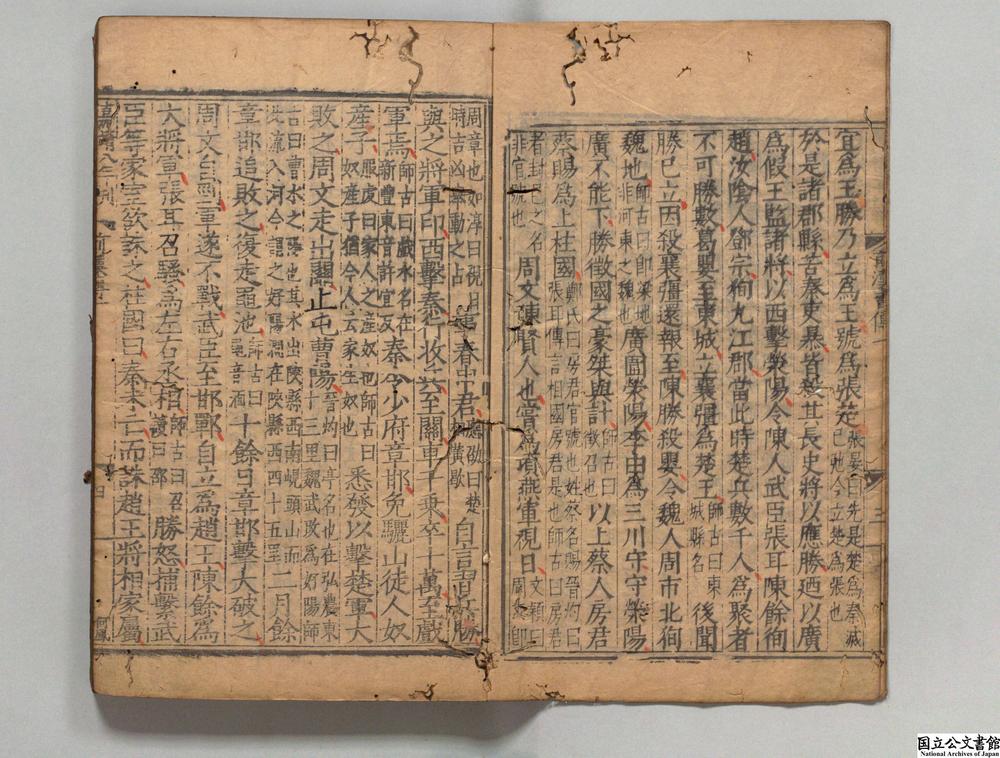 宜爲王勝乃立爲王號爲張楚張晏曰先是楚爲秦滅已弛今立楚爲張也
於是諸郡縣苦秦吏暴皆殺其長吏將以應勝廼以廣
爲假王監諸將以西擊滎陽令陳人武臣張耳陳餘徇
趙汝陰人鄧宗徇九江郡當此時楚兵數千人爲聚者
不可勝數葛嬰至東城立襄彊爲楚王師古曰東城縣名後聞
勝已立因殺襄彊還報至陳勝殺嬰令魏人周市北徇
魏地師古曰即梁地非河東之魏也廣圍滎陽李由爲三川守守滎陽
廣不能下勝徵國之豪桀與計師古曰徵召也以上蔡人房君
蔡賜爲上柱國鄭氏曰房君官號也姓蔡名賜晉灼曰張耳傳言相國房君是也師古曰房君
者封邑之名非官號也周文陳賢人也嘗爲項燕軍視日文穎曰周文即
前漢書傳一
周章也如淳曰視日時吉凶舉動之占事春申君應劭曰楚相黃歇自言習兵勝
與之將軍印西擊秦行收兵至關車千乘卒十萬至戲
軍焉師古曰戲水名在新豐東音許宜反秦令少府章邯免驪山徒人奴
產子服虔曰家人之產奴也師古曰奴產子猶今人云家生奴也悉發以擊楚軍大
敗之周文走出關止屯曹陽晉灼曰亭名也在弘農東十三里魏武敗爲好陽師
古曰曹水之陽也其水出陝縣西南峴頭山而北流入河今謂之好陽澗在陝縣西四十五里二月餘
章邯追敗之復走黽池師古曰黽音湎十餘日章邯擊大破之
周文自剄軍遂不戰武臣至邯鄲自立爲趙王陳餘爲
大將軍張耳召騷爲左右丞相師古曰召讀曰邵勝怒捕繫武
臣等家室欲誅之柱國曰秦未亡而誅趙王將相家屬
国立公文書館
National Archives of Japan